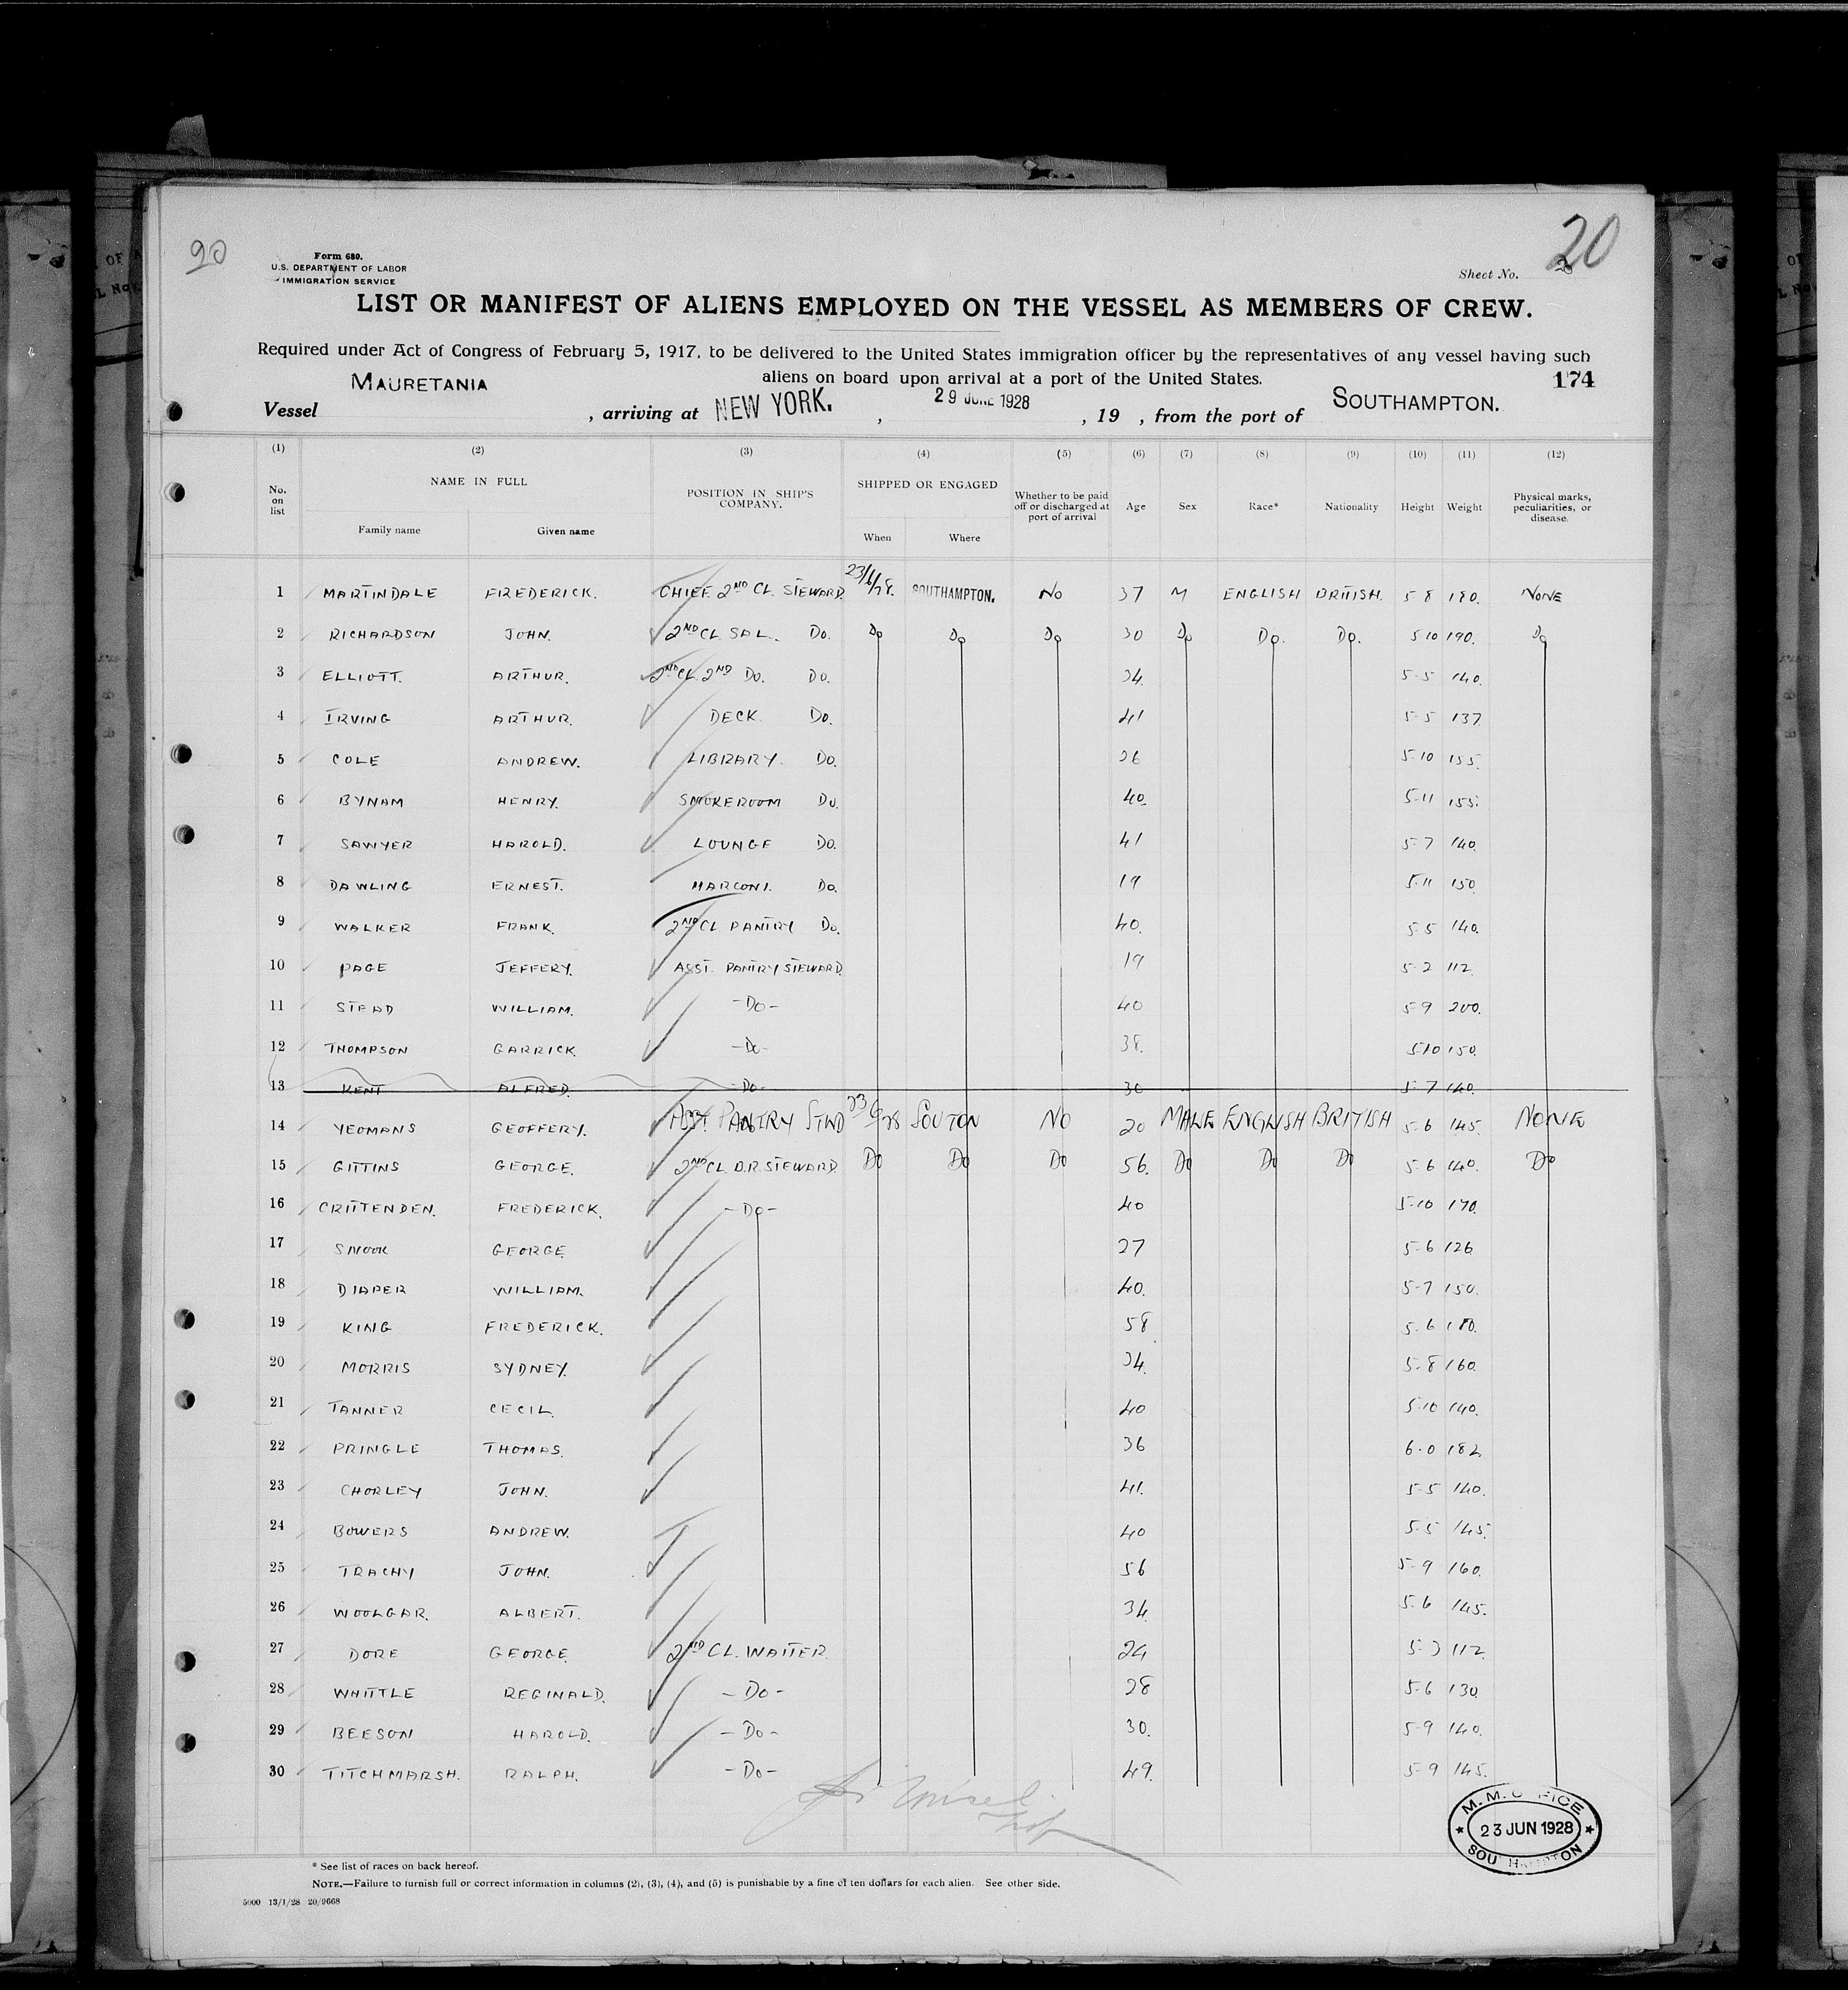 20
20
Form 680.
U.S. DEPARTMENT OF LABOR
IMMIGRATION SERVICE
Sheet No.
LIST OR MANIFEST OF ALIENS EMPLOYED ON THE VESSEL AS MEMBERS OF CREW.
Required under Act of Congress of February 5, 1917, to be delivered to the United States immigration officer by the representatives of any vessel having such
aliens on board upon arrival at a port of the United States.
174
Vessel MAURETANIA, arriving at NEW YORK., 29 JUNE 1928, 19 , from the port of SOUTHAMPTON.
(1) (2) (3) (4) (5) (6) (7) (8) (9) (10) (11) (12)
No. on list NAME IN FULL Family name Given name POSITION IN SHIP'S COMPANY. SHIPPED OR ENGAGED When Where Whether to be paid off or discharged at port of arrival Age Sex Race* Nationality Height Weight Physical marks, peculiarities, or disease.
1 MARTINDALE FREDERICK. CHIEF 2ND CL. STEWARD. 23/6/28. SOUTHAMPTON. No 37 M ENGLISH BRITISH. 5 8 180. NONE
2 RICHARDSON JOHN. 2ND CL. SAL. Do. Do Do Do 30 Do Do. Do. 5 10 190. Do
3 ELLIOTT. ARTHUR. 2ND CL. 2ND Do. Do. 34. 5-5 140.
4 IRVING ARTHUR. DECK. Do. 41 5-5 137.
5 COLE ANDREW. LIBRARY. Do. 26 5-10 155.
6 BYNAM HENRY. SMOKEROOM Do. 40. 5-11 155.
7 SAWYER HAROLD. LOUNGE Do. 41 5-7 140.
8 DAWLING ERNEST. MARCONI. Do. 19 5-11 150.
9 WALKER FRANK. 2ND CL. PANTRY Do. 40. 5 5 140.
10 PAGE JEFFERY. ASST. PANTRY STEWARD. 19 5-2 112.
11 STEAD WILLIAM. -Do- 40 5-9 200.
12 THOMPSON GARRICK. -Do- 38. 5-10 150.
13 KENT ALFRED. -Do- 30 5-7 140.
14 YEOMANS GEOFFERY. ASST. PANTRY STWD 23/6/28 SOUTON NO 20 MALE ENGLISH BRITISH 5-6 145. NONE
15 GITTINS GEORGE. 2ND CL. D.R. STEWARD. Do Do Do 56. Do Do Do 5-6 140. Do
16 CRITTENDEN. FREDERICK. -Do- 40 5-10 170.
17 SNOOK GEORGE. 27 5-6 126
18 DIAPER WILLIAM. 40. 5-7 150.
19 KING FREDERICK. 58 5-6 180.
20 MORRIS SYDNEY. 34. 5-8 160.
21 TANNER CECIL. 40 5-10 140.
22 PRINGLE THOMAS. 36 6-0 182.
23 CHORLEY JOHN. 41. 5-5 140.
24 BOWERS ANDREW. 40 5-5 145.
25 TRACHY JOHN. 56 5-9 160.
26 WOOLGAR. ALBERT. 34. 5-6 145.
27 DORE GEORGE. 2ND CL. WAITER. 24 5-3 112.
28 WHITTLE REGINALD. -Do- 28 5-6 130.
29 BEESON HAROLD. -Do- 30. 5-9 140.
30 TITCHMARSH. RALPH. -Do- 49. 5-9 145.
M.M. OFFICE
23 JUN 1928
SOUTHAMPTON
* See list of races on back hereof.
NOTE.—Failure to furnish full or correct information in columns (2), (3), (4), and (5) is punishable by a fine of ten dollars for each alien. See other side.
5000 13/1/28 20/9668